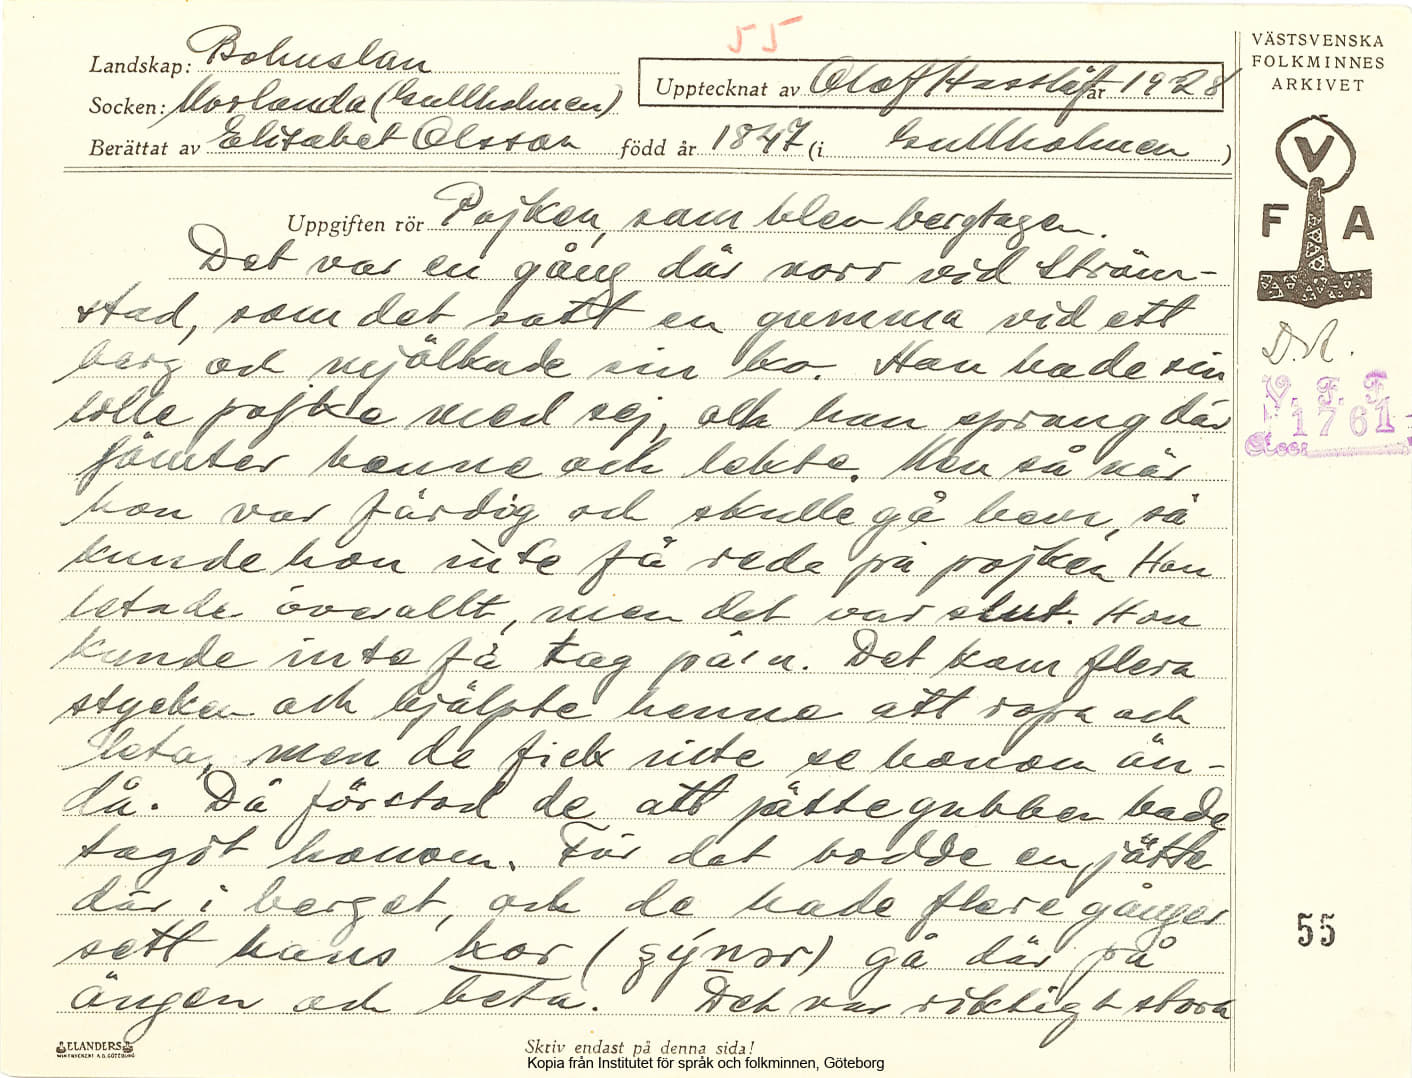 55
Landskap: Bohuslän
Socken: Morlanda (Gullholmen)
Upptecknat av Olof Hasslöf år 1928
Berättat av Elisabet Olsson född år 1847 (i Gullholmen)
VÄSTSVENSKA
FOLKMINNES
ARKIVET
V
F A
D.A.
V. F. F.
1761
Acc:
Uppgiften rör Pojken, som blev bergtagen.
Det var en gång där norr vid Ström-
stad, som det satt en gumma vid ett
berg och mjölkade sin ko. Hon hade sin
lille pojke med sej, och han sprang där
jämter henne och lekte. Men så när
hon var färdig och skulle gå hem, så
kunde hon inte få reda på pojken. Hon
letade överallt, men det var slut. Hon
kunde inte få tag på'n. Det kom flera
stycken och hjälpte henne att ropa och
leta, men de fick inte se honom än-
då. Då förstod de att jättegubben hade
tagit honom. För det bodde en jätte
där i berget, och de hade flere gånger
sett hans kor ( ) gå där på
ängen och beta. Det var riktigt stora
55
ELANDERS
Skriv endast på denna sida!
Kopia från Institutet för språk och folkminnen, Göteborg